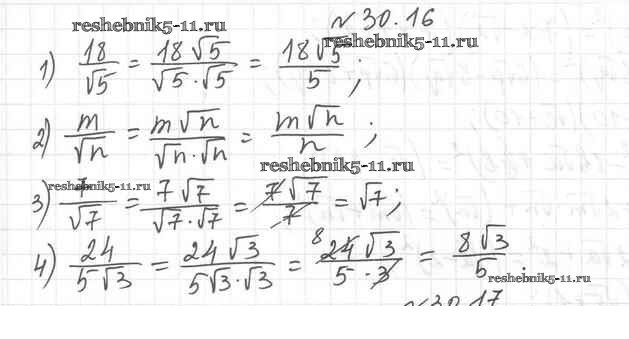 № 30.16
reshebnik5-11.ru
reshebnik5-11.ru
1) 18/√5 = 18√5/(√5·√5) = 18√5/5;
2) m/√n = m√n/(√n·√n) = m√n/n;
reshebnik5-11.ru
reshebnik5-11.ru
3) 7/√7 = 7√7/(√7·√7) = 7√7/7 = √7;
4) 24/(5√3) = 24√3/(5√3·√3) = 8 24√3/(5·3) = 8√3/5.
reshebnik5-11.ru
№ 30.17